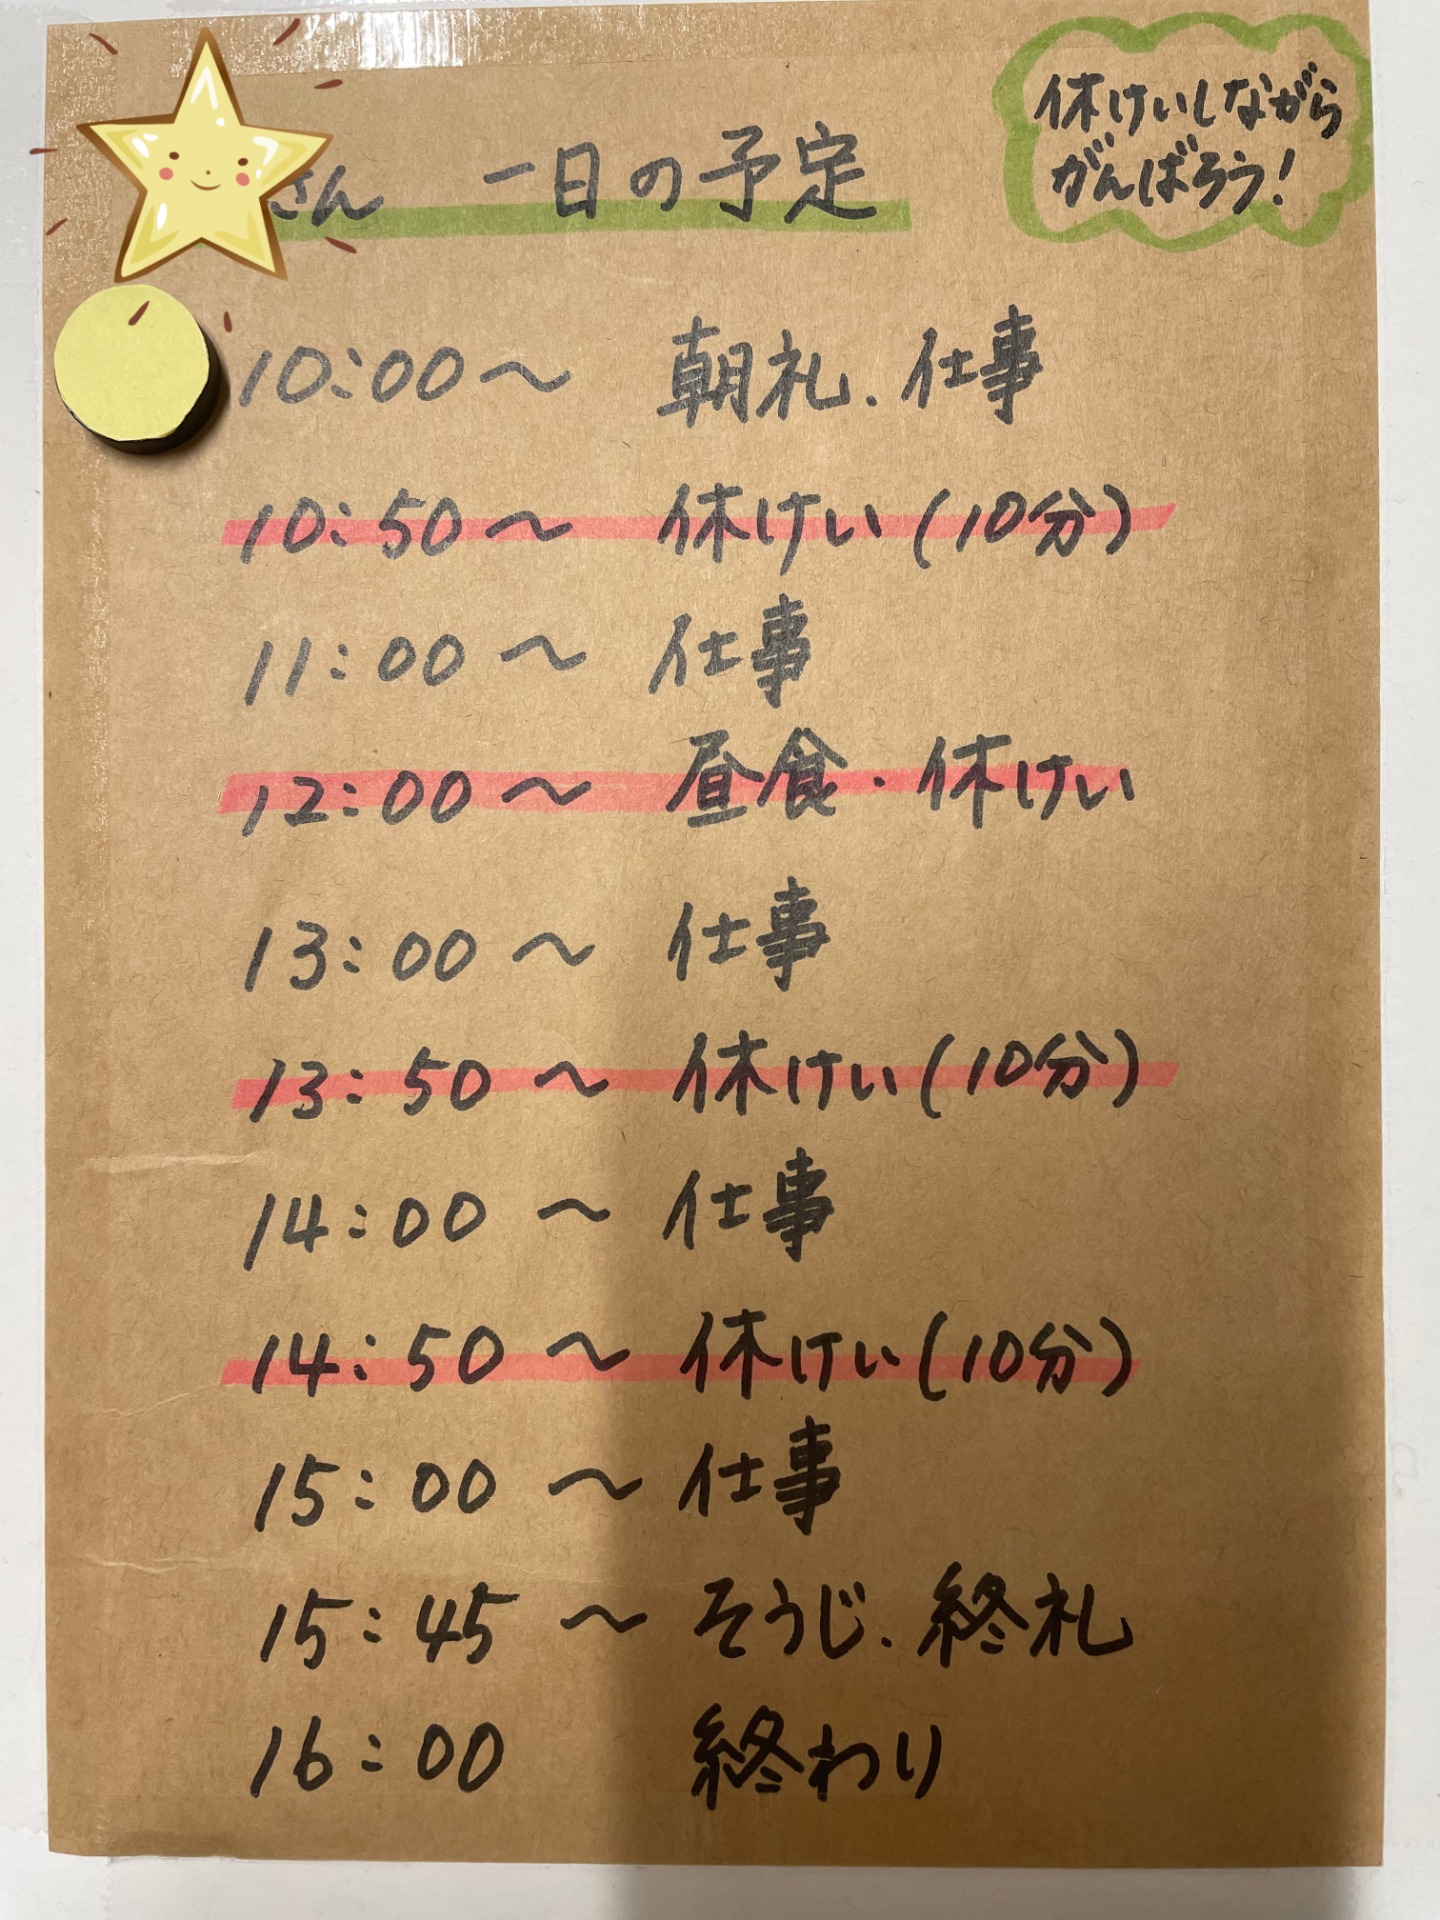 さん 一日の予定
休けいしながら
がんばろう!
10:00〜 朝礼.仕事
10:50〜 休けい(10分)
11:00〜 仕事
12:00〜 昼食・休けい
13:00〜 仕事
13:50〜 休けい(10分)
14:00〜 仕事
14:50〜 休けい(10分)
15:00〜 仕事
15:45〜 そうじ.終礼
16:00 終わり